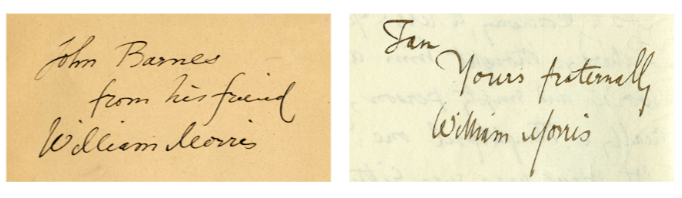 John Barnes
from his friend
William Morris
I am
Yours fraternally
William Morris